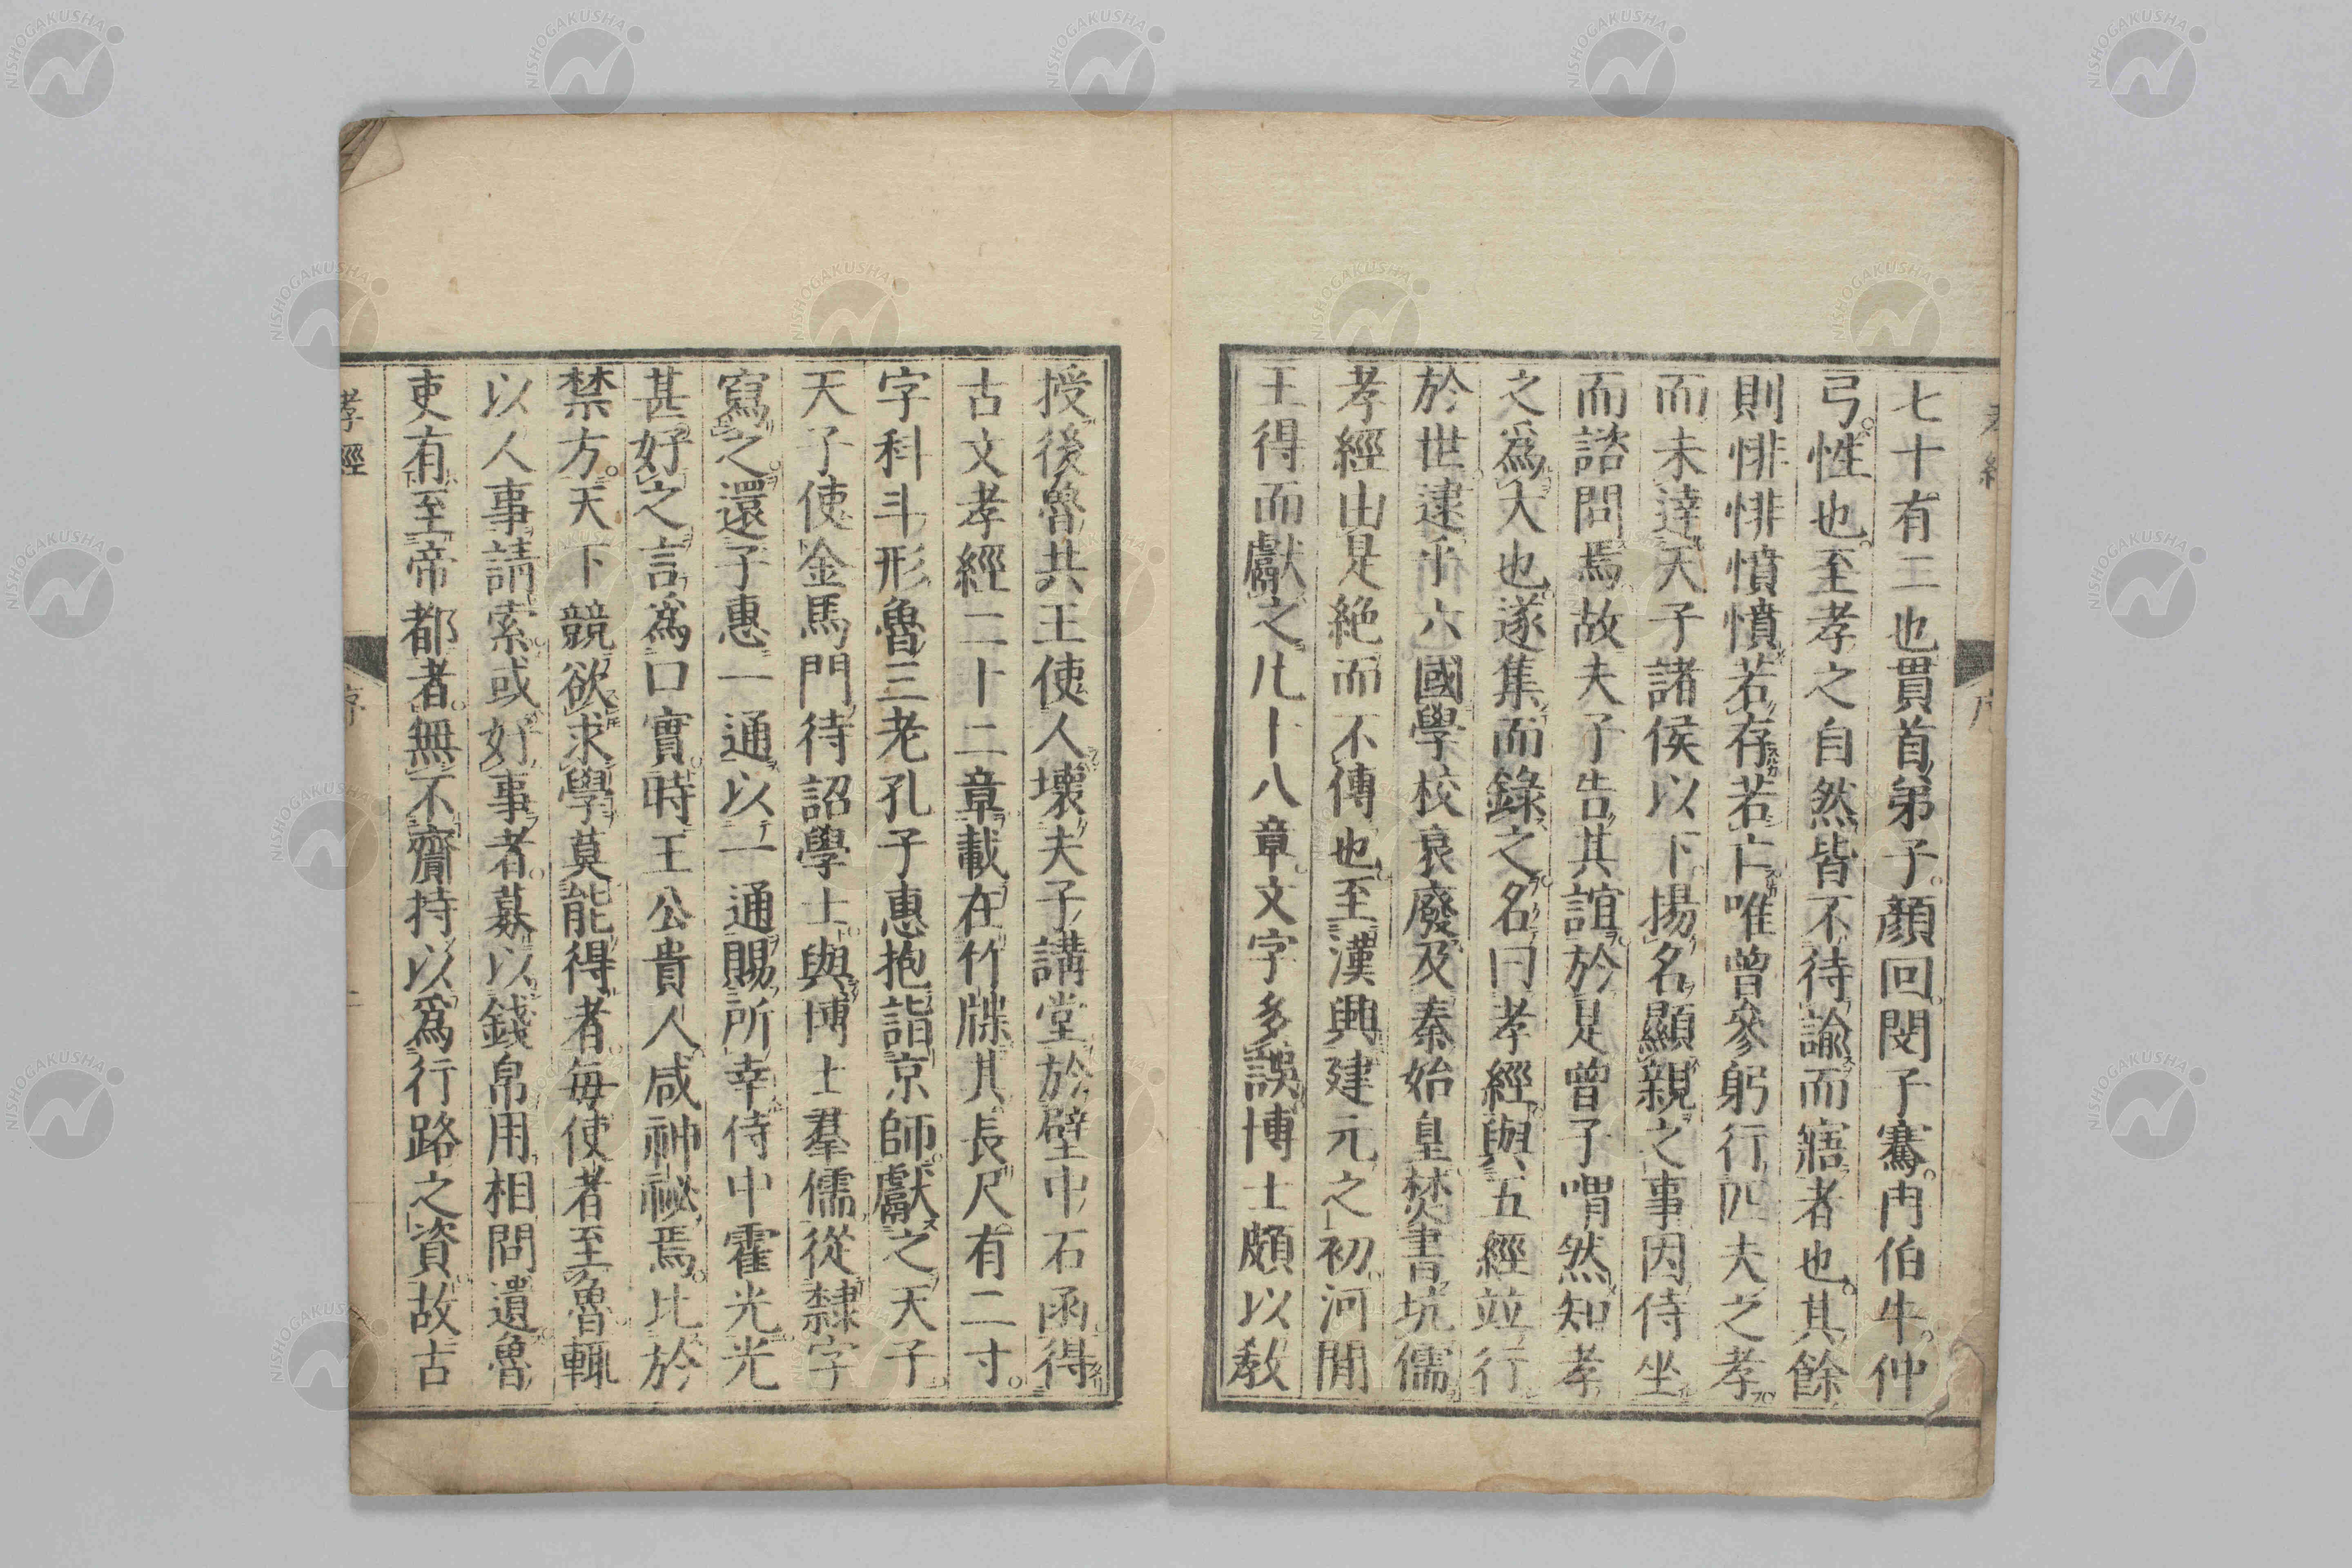 七十有二也貫首弟子顏回閔子騫冉伯牛仲
弓性也至孝之自然皆不待諭而寤者也其餘
則悱悱憤憤若存若亡唯曾參躬行匹夫之孝
而未達天子諸侯以下揚名顯親之事因侍坐
而諮問焉故夫子告其誼於是曾子喟然知孝
之爲大也遂集而錄之名曰孝經與五經竝行
於世逮乎六國學校衰廢及秦始皇焚書坑儒
孝經由是絕而不傳也至漢興建元之初河閒
王得而獻之凡十八章文字多誤博士頗以敎
授後魯共王使人壞夫子講堂於壁中石函得
古文孝經二十二章載在竹牒其長尺有二寸
字科斗形魯三老孔子惠抱詣京師獻之天子
天子使金馬門待詔學士與博士羣儒從隸字
寫之還子惠一通以一通賜所幸侍中霍光光
甚好之言爲口實時王公貴人咸神祕焉比於
禁方天下競欲求學莫能得者每使者至魯輒
以人事請索或好事者募以錢帛用相問遺魯
吏有至帝都者無不齎持以爲行路之資故古
孝經
序
NISHOGAKUSHA